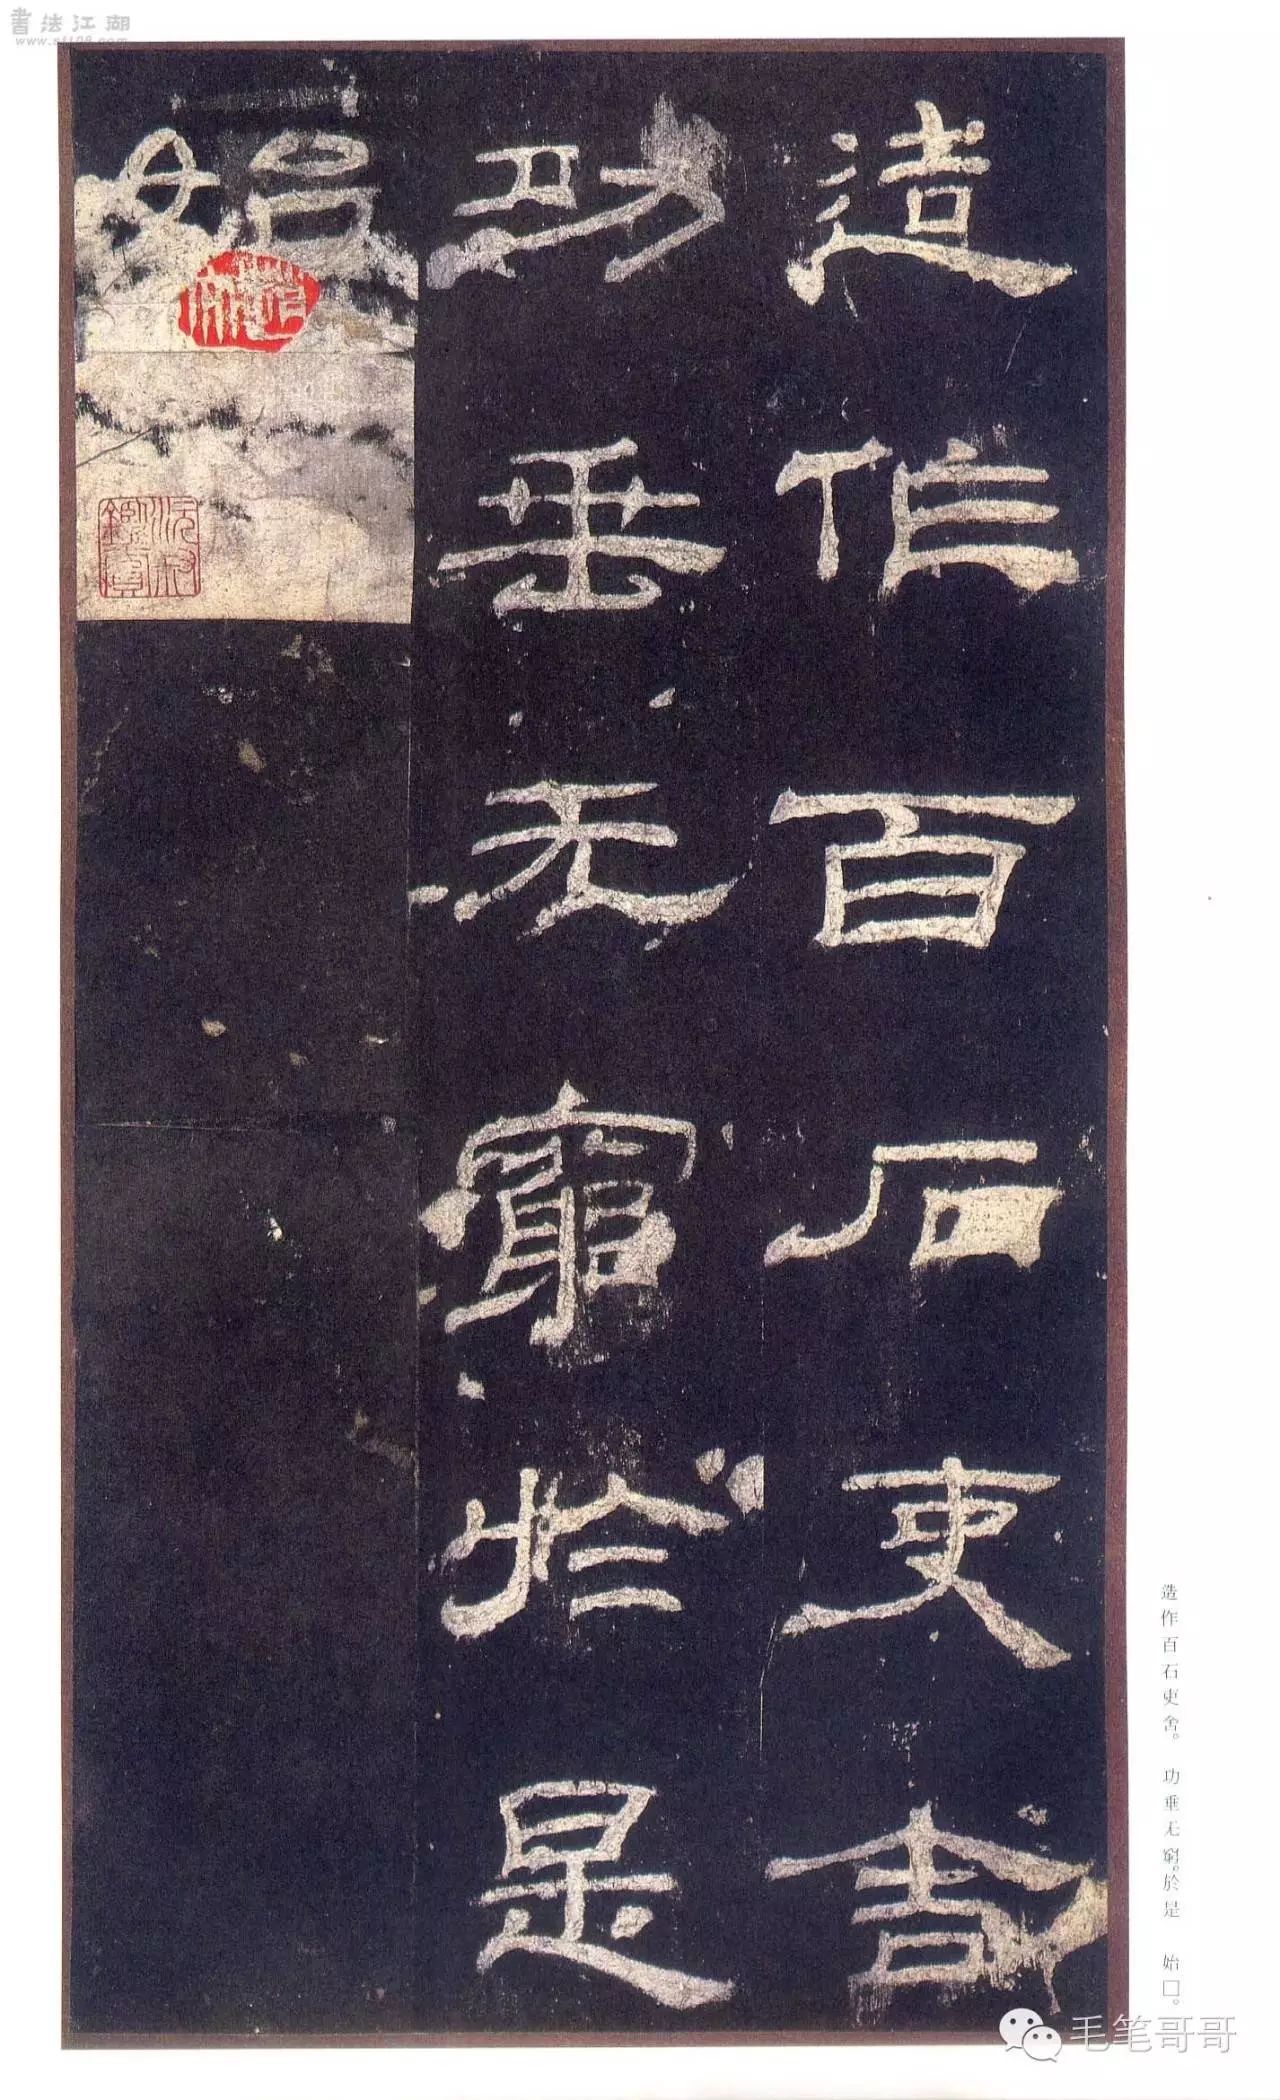 書法江湖
造作百石吏舍
功垂无窮於是
始
造作百石吏舍。功垂无窮。於是 始□。
毛笔哥哥